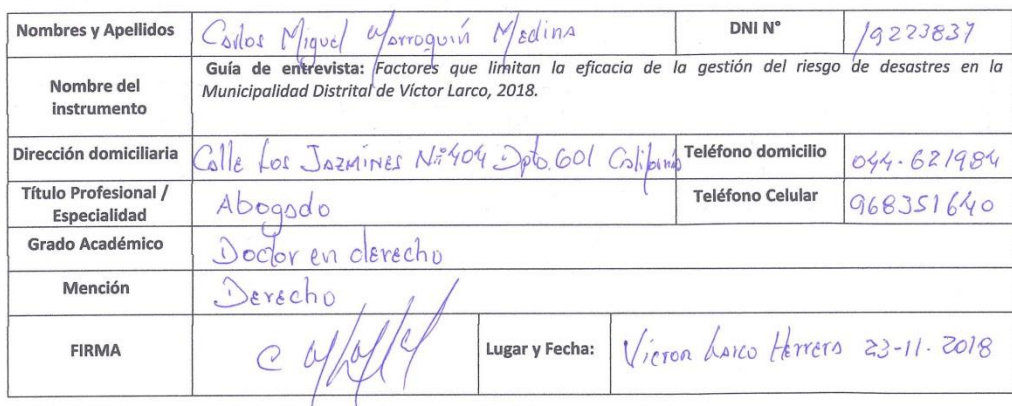 Nombres y Apellidos Carlos Miguel Marroquín Medina DNI N° 19223837
Nombre del instrumento Guía de entrevista: Factores que limitan la eficacia de la gestión del riesgo de desastres en la
Municipalidad Distrital de Víctor Larco, 2018.
Dirección domiciliaria Calle Los Jazmines N° 404 Dpto. 601 California Teléfono domicilio 044-621984
Título Profesional / Especialidad Abogado Teléfono Celular 968351640
Grado Académico Doctor en derecho
Mención Derecho
FIRMA Lugar y Fecha: Victor Larco Herrera 23-11-2018